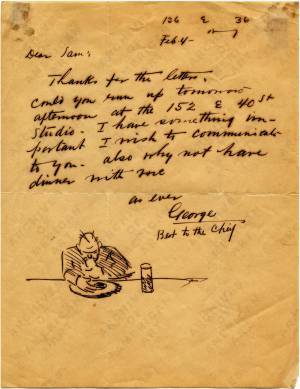 136 E 36
Feb. 4-
Dear Sam:
Thanks for the letter.
Could you run up tomorrow
afternoon at the 152 E 40 St
Studio - I have something im-
portant I wish to communicate
to you - also why not have
dinner with me
as ever
George
Best to the Chief